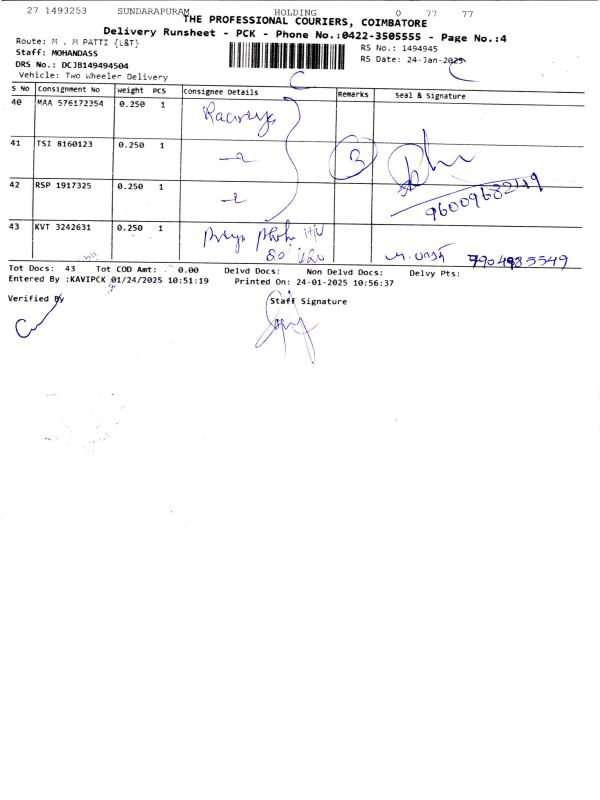 27 1493253 SUNDARAPURAM HOLDING 0 77 77
THE PROFESSIONAL COURIERS, COIMBATORE
Delivery Runsheet - PCK - Phone No.:0422-3505555 - Page No.:4
Route: M . M PATTI {L&T}
RS No.: 1494945
Staff: MOHANDASS
RS Date: 24-Jan-2025
DRS No.: DCJB149494504
Vehicle: Two Wheeler Delivery
S No Consignment No Weight PCS Consignee Details Remarks Seal & Signature
40 MAA 576172354 0.250 1
41 TSI 8160123 0.250 1 3
42 RSP 1917325 0.250 1
96009682449
43 KVT 3242631 0.250 1
7904985549
Tot Docs: 43 Tot COD Amt: 0.00 Delvd Docs: Non Delvd Docs: Delvy Pts:
Entered By :KAVIPCK 01/24/2025 10:51:19 Printed On: 24-01-2025 10:56:37
Verified By Staff Signature